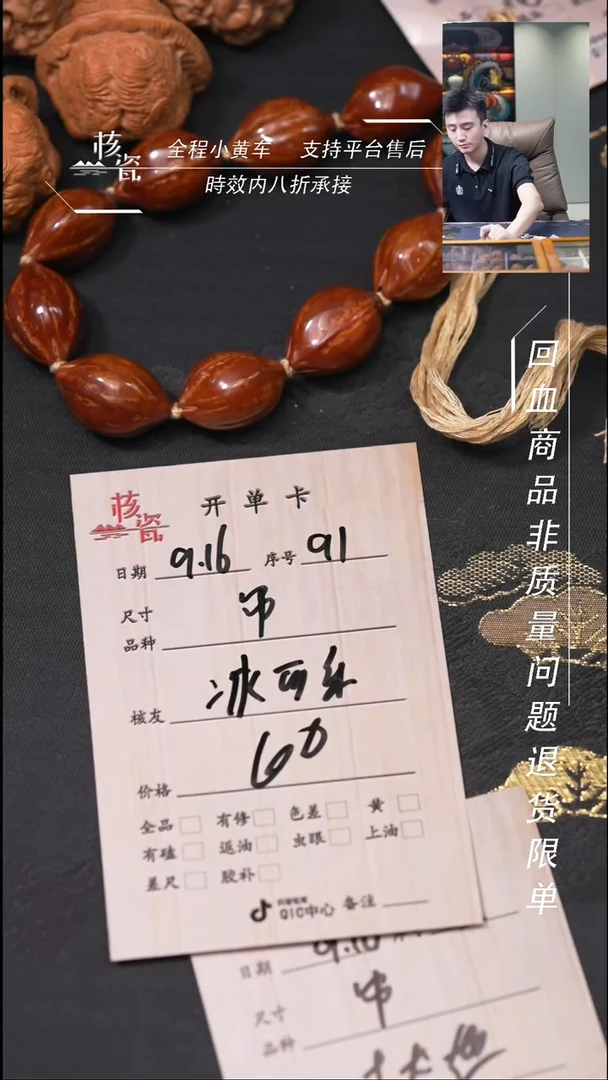 核瓷
全程小黄车 支持平台售后
時效内八折承接
回血商品非质量问题退货限单
核瓷
开单卡
日期 9.16 序号 91
尺寸
品种
核友
价格 60
全品 有修 色差 黄
有磕 返油 虫眼 上油
差尺 胶补
QIC中心 备注
日期 9.16
尺寸
品种